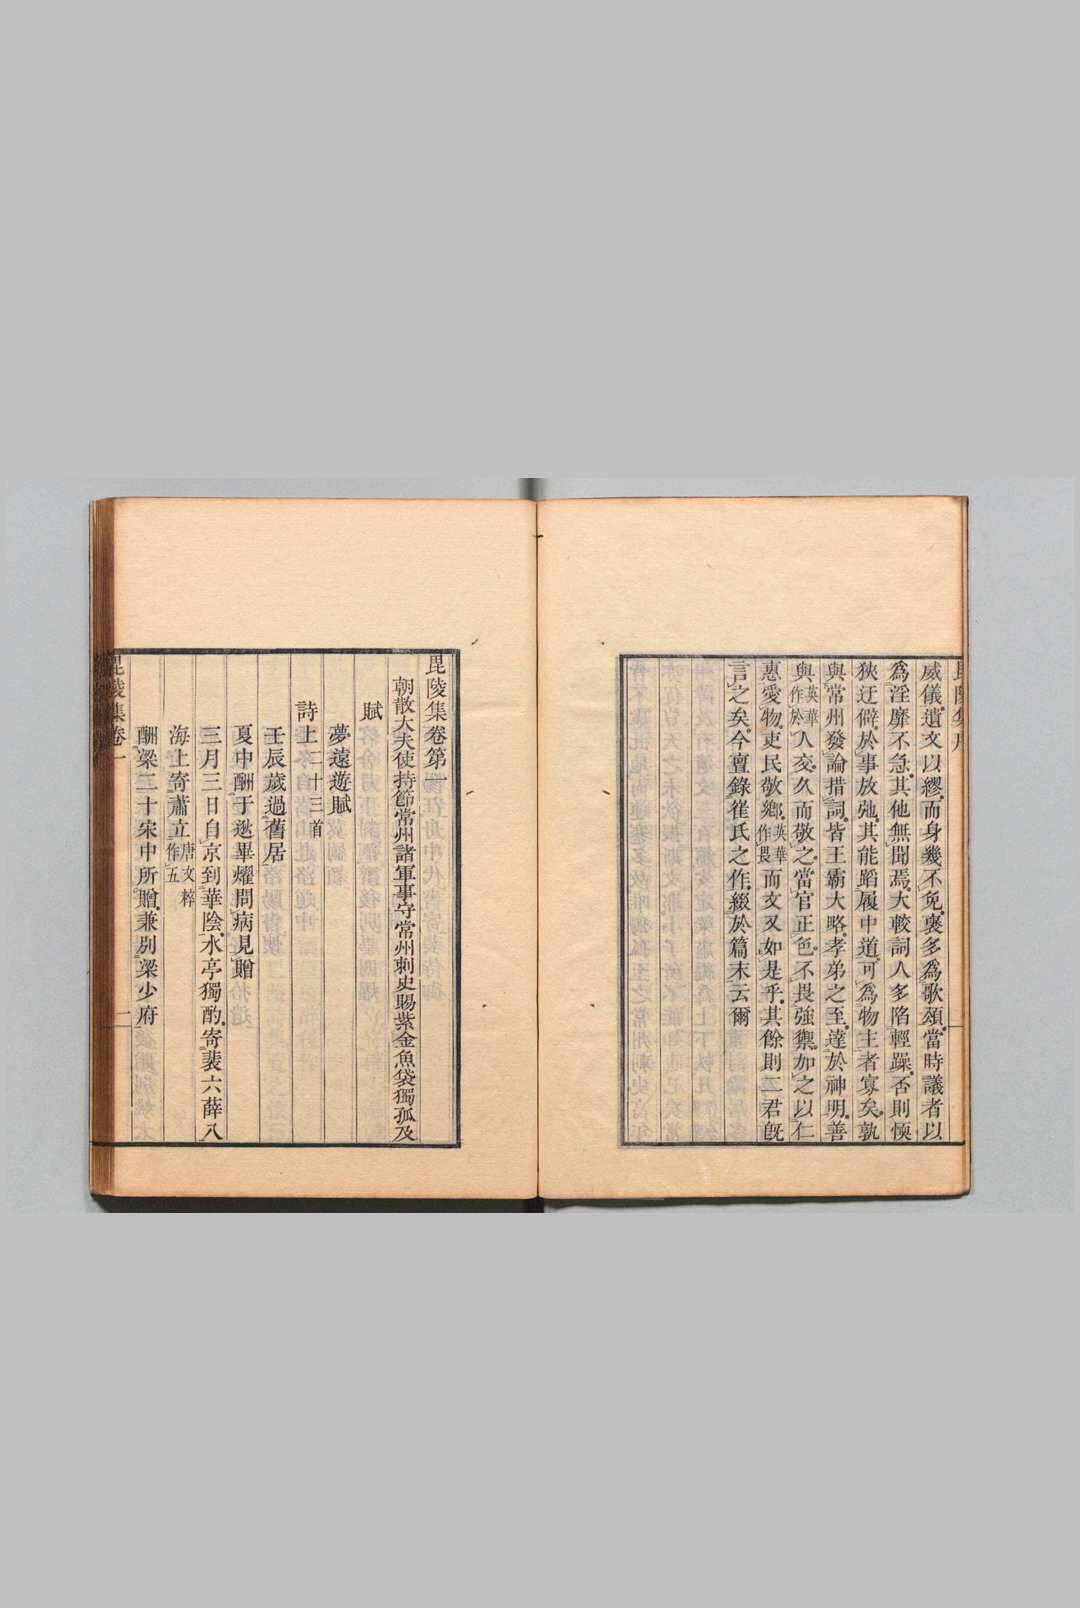 威儀遺文以繆而身幾不免裒多爲歌頌當時議者以
爲淫靡不急其他無聞焉大較詞人多陷輕躁否則愞
狹迂僻於事放弛其能蹈履中道可爲物主者寡矣孰
與常州發論措詞皆王霸大略孝弟之至達於神明善
與英華作於人交久而敬之當官正色不畏強禦加之以仁
惠愛物吏民敬鄉英華作畏而文又如是乎其餘則二君旣
言之矣今亶錄崔氏之作綴於篇末云爾
毘陵集卷第一
朝散大夫使持節常州諸軍事守常州刺史賜紫金魚袋獨孤及
賦
夢遠遊賦
詩上二十三首
壬辰歲過舊居
夏中酬于逖畢燿問病見贈
三月三日自京到華陰水亭獨酌寄裴六薛八
海上寄蕭立唐文粹作五
酬梁二十宋中所贈兼別梁少府
毘陵集卷一
一